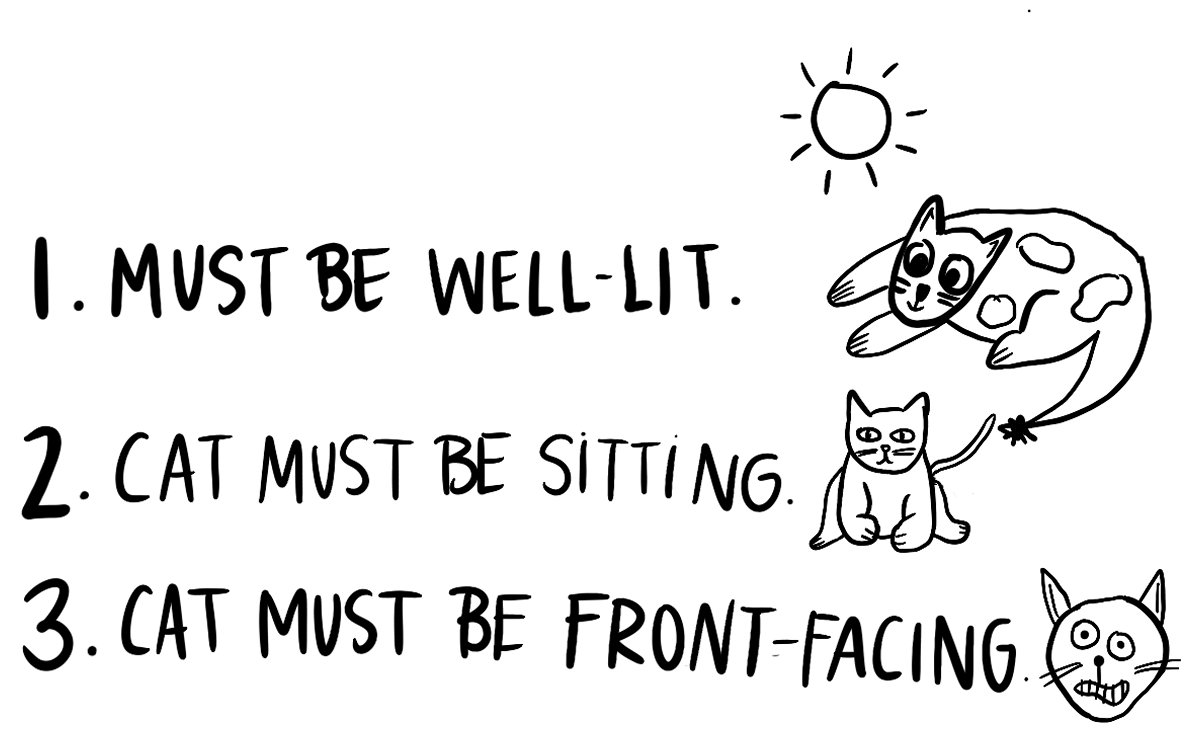 1. MUST BE WELL-LIT.
2. CAT MUST BE SITTING.
3. CAT MUST BE FRONT-FACING.